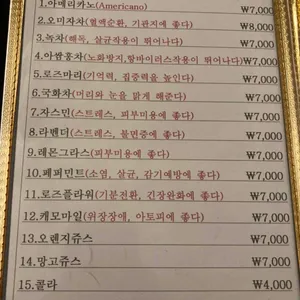 1.아메리카노(Americano) ₩7,000
2.오미자차(혈액순환, 기관지에 좋다) ₩8,000
3.녹차(해독, 살균작용이 뛰어나다) ₩7,000
4.아쌈홍차(노화방지,항바이러스작용이 뛰어나다) ₩7,000
5.로즈마리(기억력, 집중력을 높인다) ₩7,000
6.국화차(머리와 눈을 맑게 해준다) ₩7,000
7.자스민(스트레스, 피부미용에 좋다) ₩7,000
8.라벤더(스트레스, 불면증에 좋다) ₩7,000
9.레몬그라스(피부미용에 좋다) ₩7,000
10.페퍼민트(소염, 살균, 감기예방에 좋다) ₩7,000
11.로즈플라워(기분전환, 긴장완화에 좋다) ₩7,000
12.캐모마일(위장장애, 아토피에 좋다) ₩7,000
13.오렌지쥬스 ₩7,000
14.망고쥬스 ₩7,000
15.콜라 ₩4,000